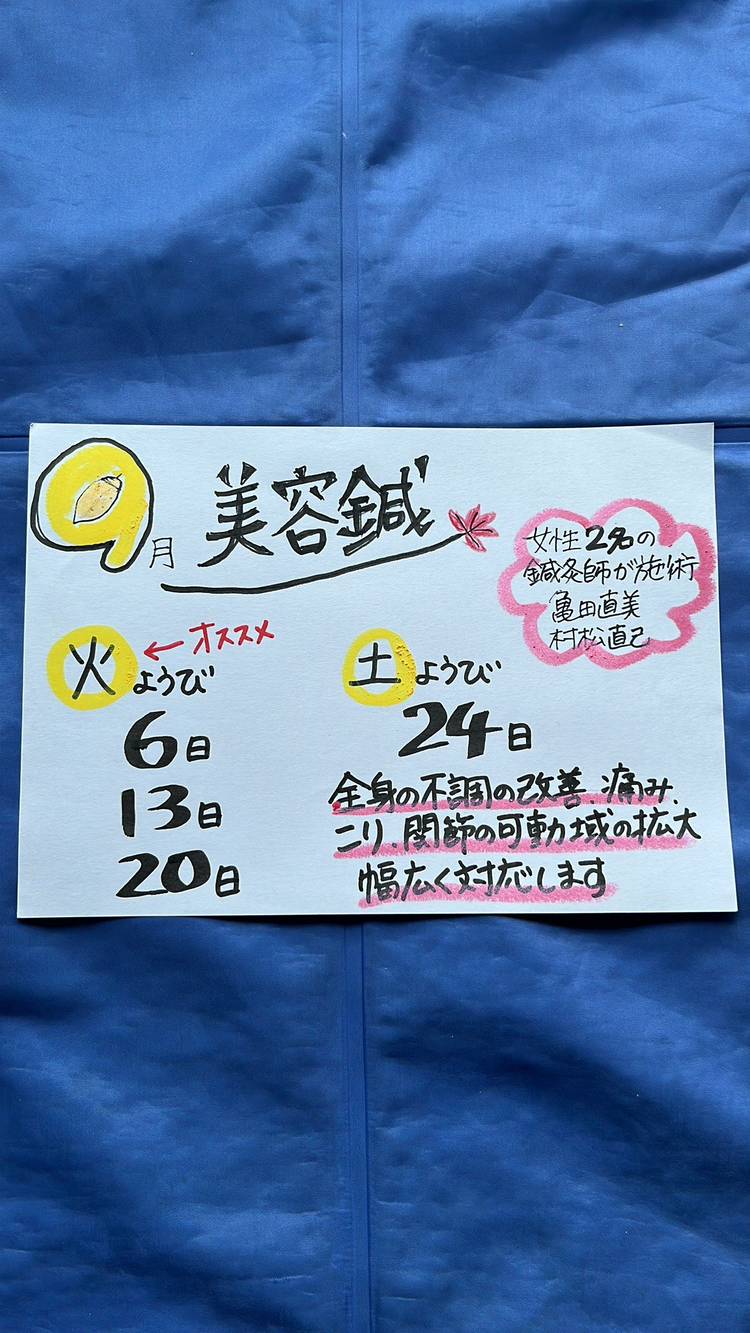 9月 美容鍼
女性2名の
鍼灸師が施術
亀田直美
村松直己
火ようび ←オススメ
6日
13日
20日
土ようび
24日
全身の不調の改善、痛み、
コリ、関節の可動域の拡大
幅広く対応します